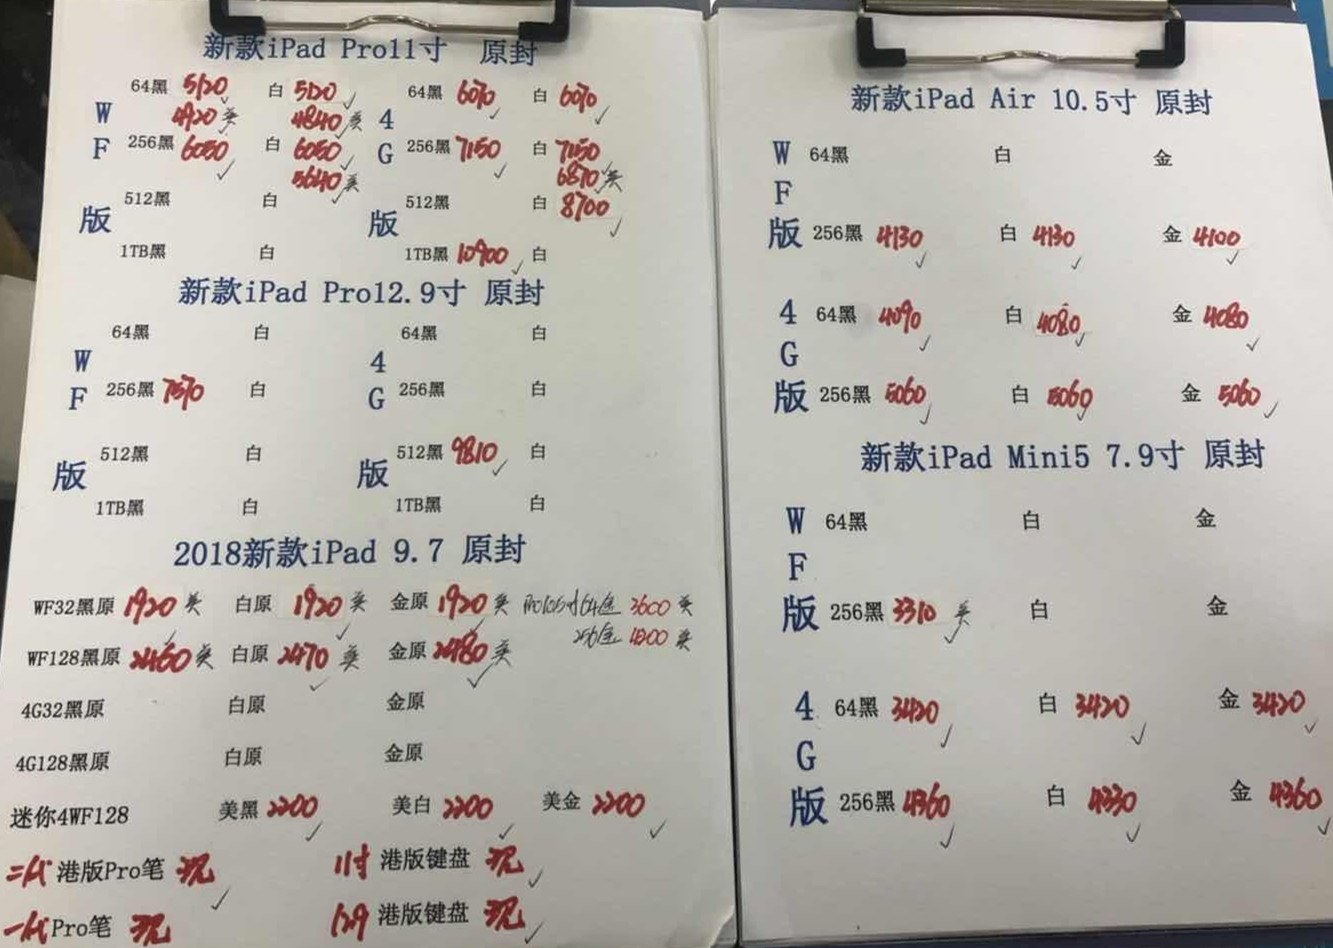 新款iPad Pro11寸 原封
64黑 5120 白 5120 64黑 6070 白 6070
W 4920 美 4840 美 4
F 256黑 6050 白 6050 G 256黑 7150 白 7150
5640 美 6870 美
版 512黑 白 版 512黑 白 8700
1TB黑 白 1TB黑 10900 白
新款iPad Pro12.9寸 原封
64黑 白 64黑 白
W 4
F 256黑 7570 白 G 256黑 白
版 512黑 白 版 512黑 9810 白
1TB黑 白 1TB黑 白
2018新款iPad 9.7 原封
WF32黑原 1920 美 白原 1920 美 金原 1920 美 Pro10.5寸64金 3600 美
256金 4200 美
WF128黑原 2460 美 白原 2470 美 金原 2480 美
4G32黑原 白原 金原
4G128黑原 白原 金原
迷你4WF128 美黑 2200 美白 2200 美金 2200
二代 港版Pro笔 现 11寸 港版键盘 现
一代 Pro笔 现 12.9 港版键盘 现
新款iPad Air 10.5寸 原封
W 64黑 白 金
F
版 256黑 4130 白 4130 金 4100
4 64黑 4090 白 4080 金 4080
G
版 256黑 5060 白 5060 金 5060
新款iPad Mini5 7.9寸 原封
W 64黑 白 金
F
版 256黑 3310 美 白 金
4 64黑 3420 白 3420 金 3420
G
版 256黑 4360 白 4330 金 4360